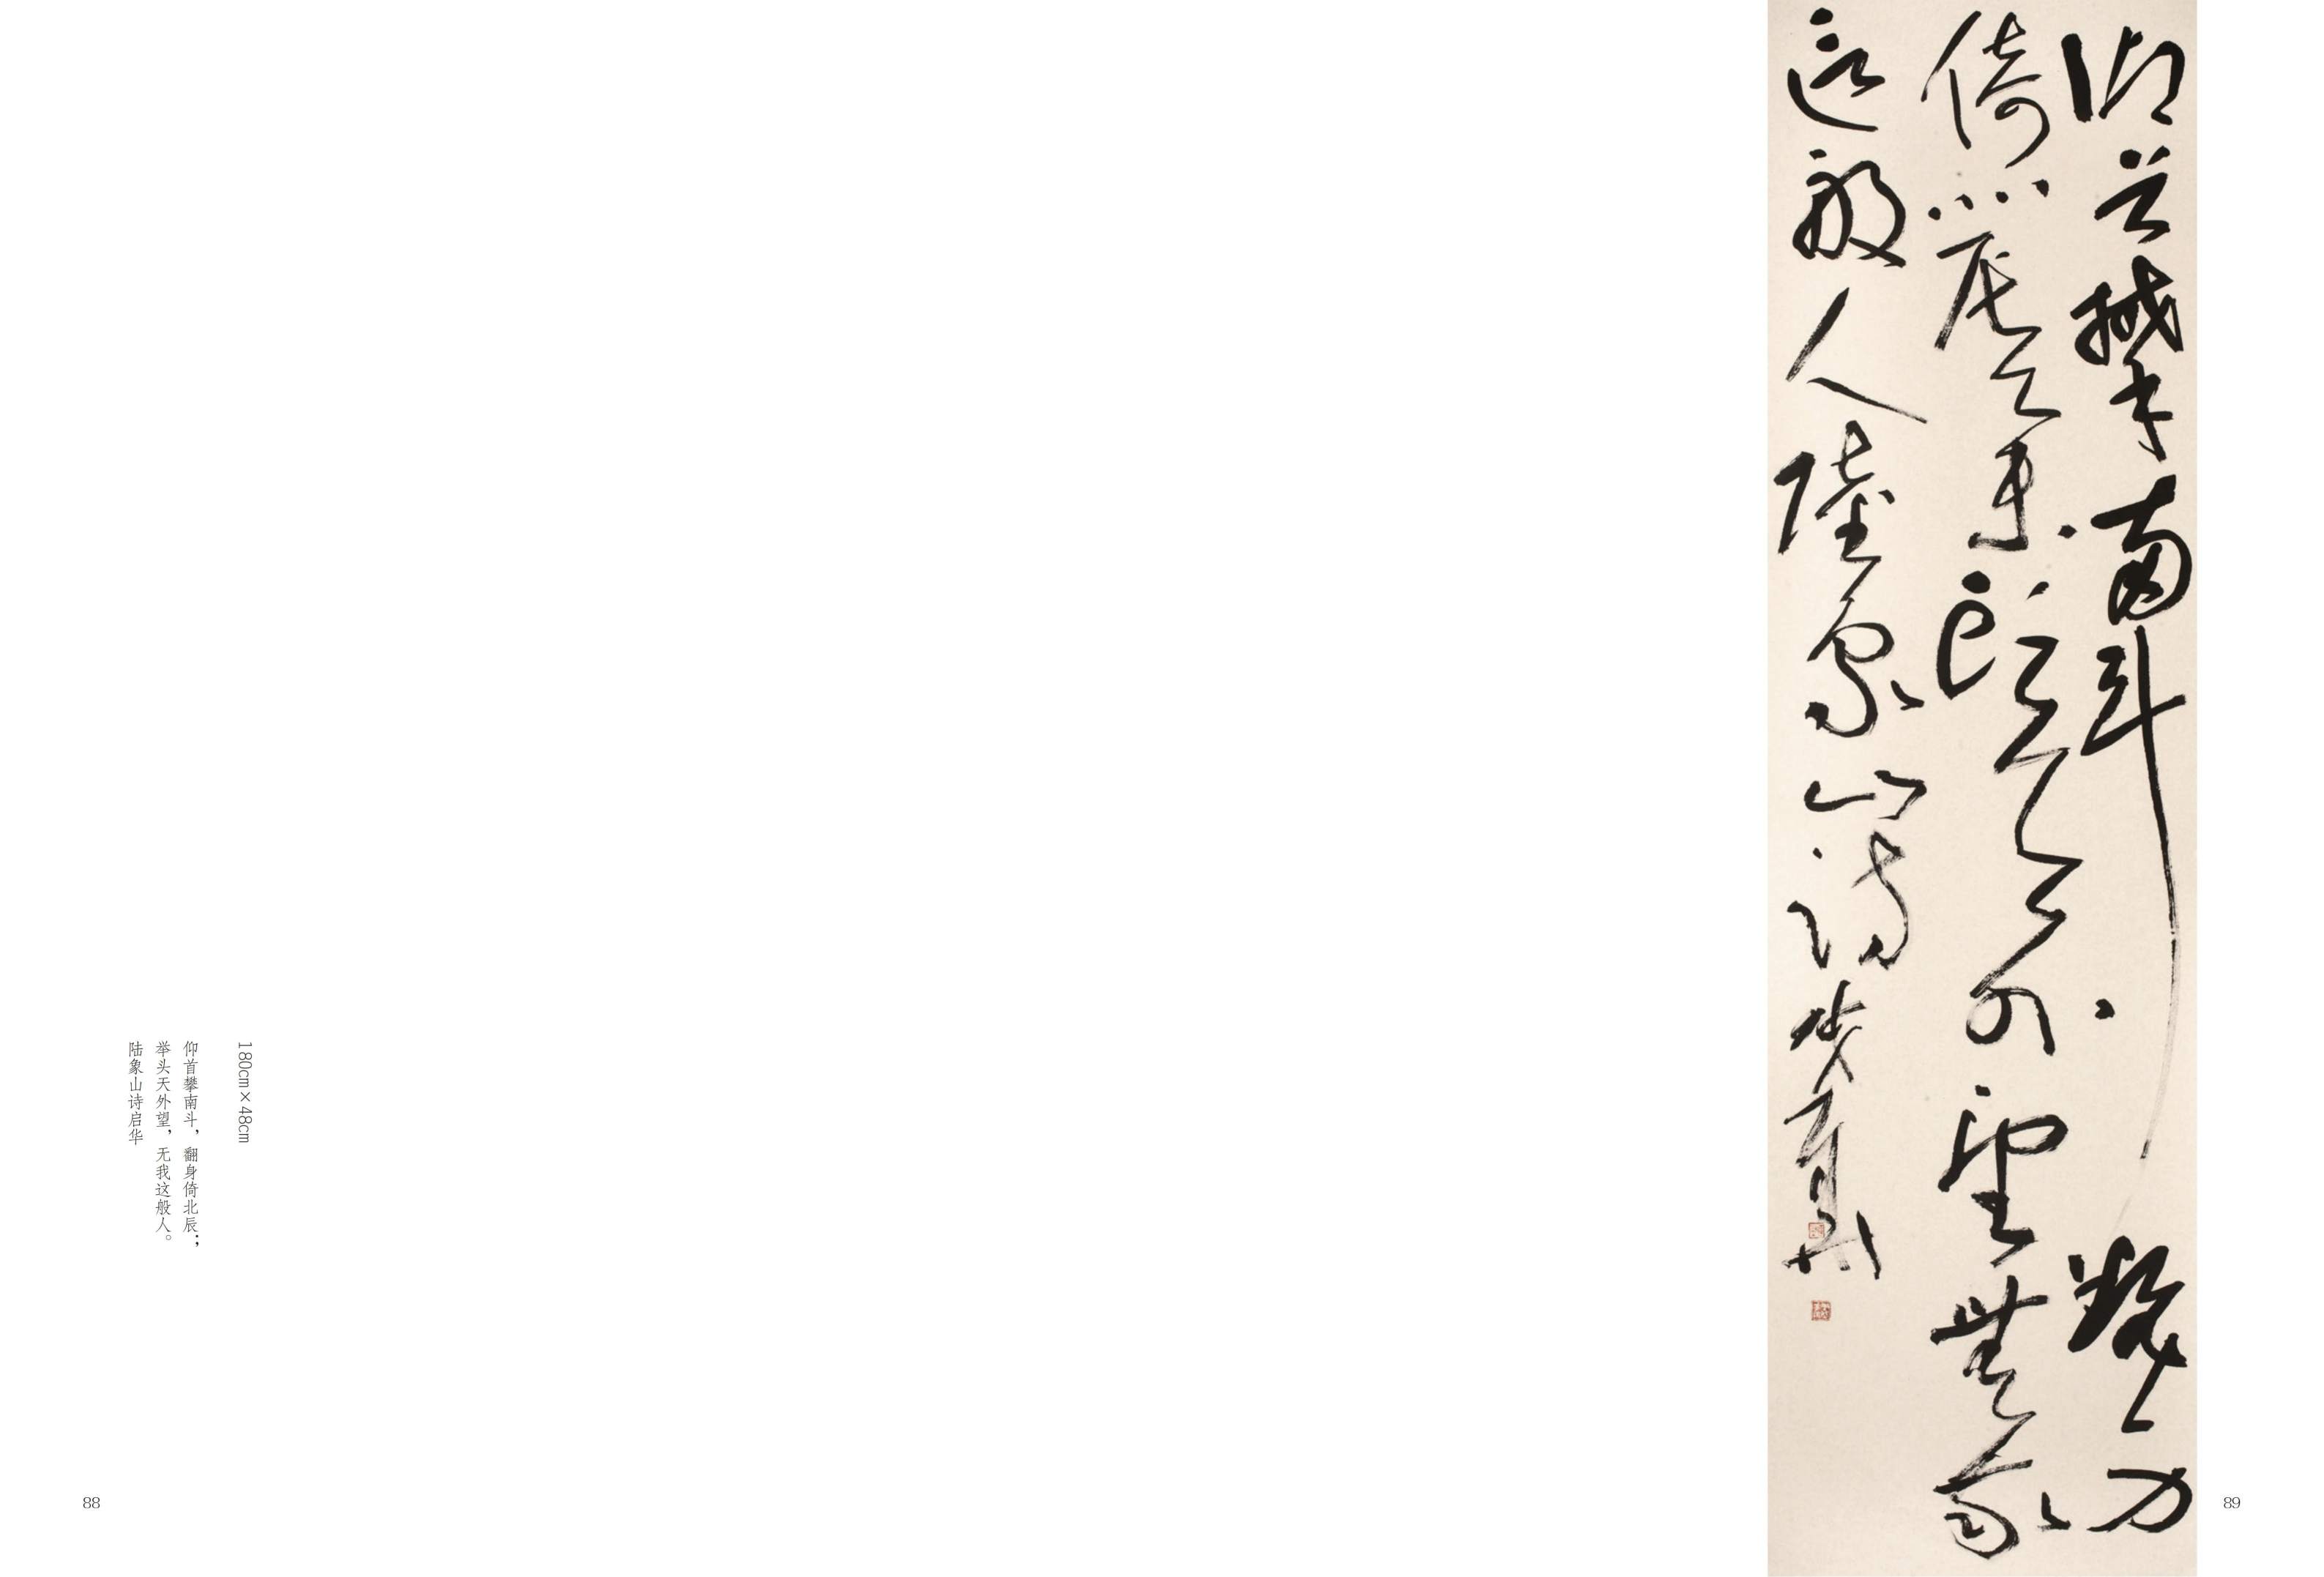 180cm×48cm
仰首攀南斗，翻身倚北辰；
举头天外望，无我这般人。
陆象山诗启华
88
仰首攀南斗翻身
倚北辰舉頭天外望無我
這般人陸象山詩啟華
89